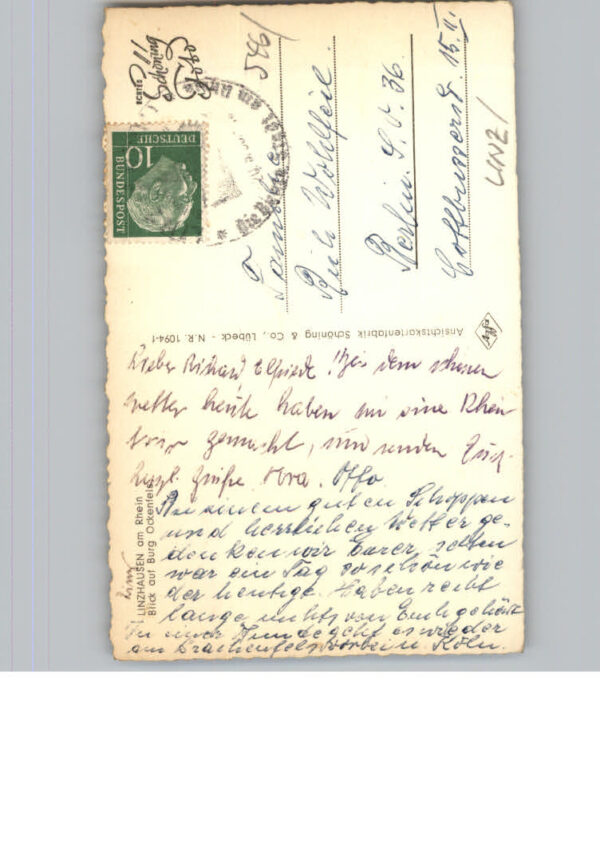 Lieber Richard, Elfriede! Bei dem schönen
Wetter heute haben wir eine Rhein
tour gemacht, und senden Euch
herzl. Grüße Otto.
Bei einem guten Schoppen
und herrlichen Wetter ge-
denken wir Eurer, selten
war ein Tag so schön wie
der heutige. Haben recht
lange nichts von Euch gehört
In einer Stunde geht es wieder
am Drachenfels vorbei n. Köln.
LINZHAUSEN am Rhein
Blick auf Burg Ockenfels
Ansichtskartenfabrik Schöning & Co., Lübeck - N.R. 1094-1
Agfa
Familie
Rich. Wohlfeil
Berlin. S.O. 36.
Cottbusserstr. 15.II.
LINZ/
546/
DEUTSCHE
BUNDESPOST
10
ECHTES